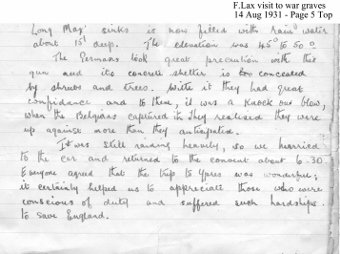 F.Lax visit to war graves
14 Aug 1931 - Page 5 Top
Long Max' sinks is now filled with rain water
about 15' deep. The elevation was 45° to 50°
The Germans took great precaution with this
gun and its concrete shelter is too concealed
by shrubs and trees. With it they had great
confidance and to them, it was a knock out blow,
when the Belgians captured it. They realised they were
up against more than they anticipated.
It was still raining heavily, so we hurried
to the car and returned to the convent about 6-30
Everyone agreed that the trip to Ypres was wonderful;
it certainly helped us to appreciate those who were
conscious of duty and suffered such hardships
to save England.